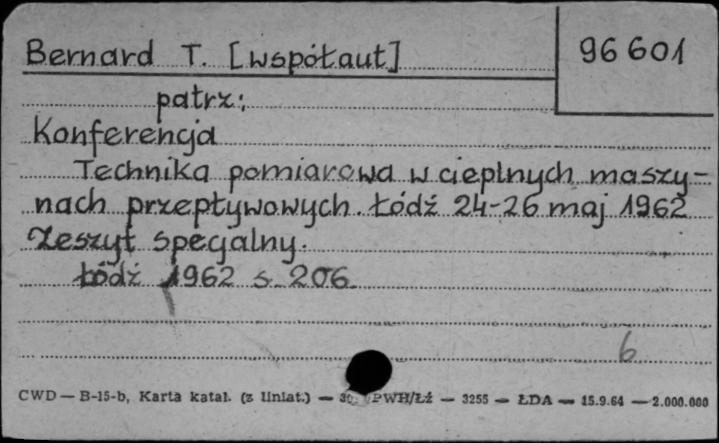 Bernard T. [współaut] 96 601
patrz:
Konferencja
Technika pomiarowa w cieplnych maszy-
nach przepływowych. Łódź 24-26 maj 1962
Zeszyt specjalny.
Łódź 1962 s. 206.
6
CWD — B-15-b, Karta katal. (z liniat.) — PWH/Łź — 3255 — ŁDA — 15.9.64 — 2.000.000